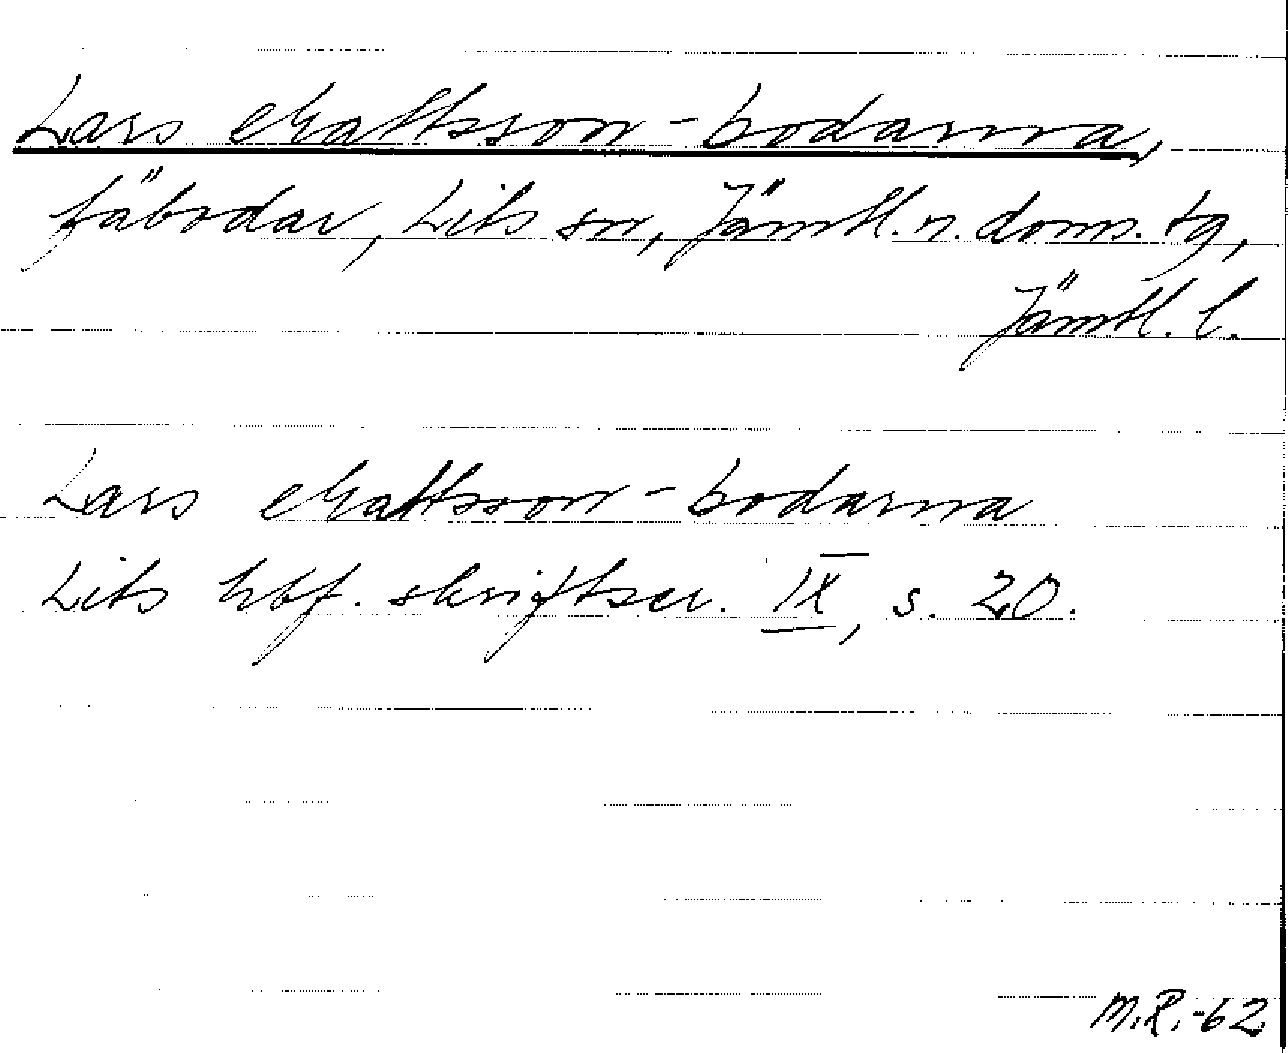 Lars Mattsson-bodarna,
fäbodar, Lits sn, Jämtl. n. doms. tg,
Jämtl. l.
Lars Mattsson-bodarna
Lits hbf. skriftser. IX, s. 20.
M.R.-62